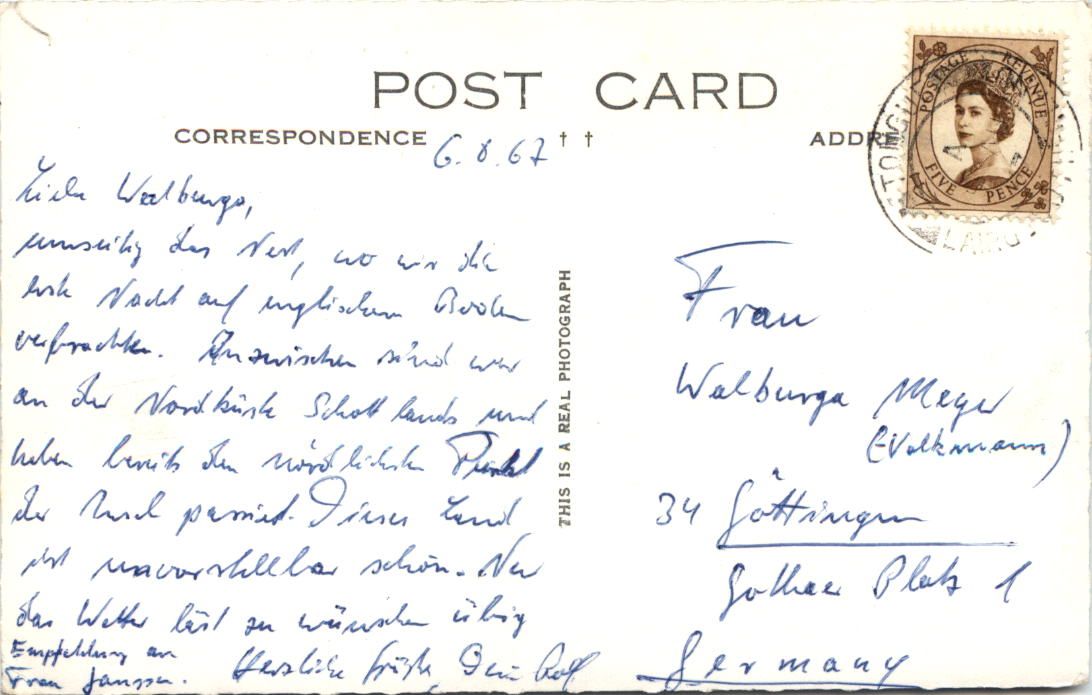 POST CARD
CORRESPONDENCE
ADDR
6.8.67
Liebe Walburga,
umseitig das Nest, wo wir die
erste Nacht auf englischem Boden
verbrachten. Inzwischen sind wir
an der Nordküste Schottlands und
haben bereits den nördlichsten Punkt
der Insel passiert. Dieses Land
ist unvorstellbar schön. Nur
das Wetter läst zu wünschen übrig
Empfehlung an
Frau Janssen.
Herzliche Grüße, Dein Rolf
THIS IS A REAL PHOTOGRAPH
POSTAGE REVENUE
FIVE PENCE
LAIRG
Frau
Walburga Meyer
(Volkmann)
34 Göttingen
Gothaer Platz 1
Germany